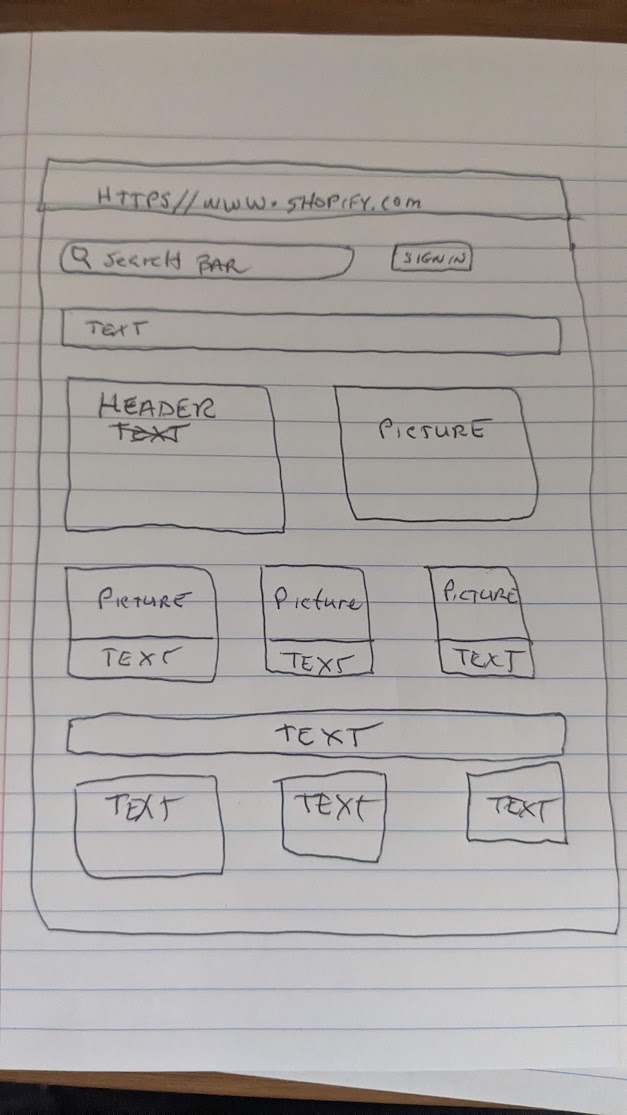 HTTPS//WWW.SHOPIFY.COM
Search BAR
SIGN IN
TEXT
HEADER
TEXT
PICTURE
PICTURE
Picture
PICTURE
TEXT
TEXT
TEXT
TEXT
TEXT
TEXT
TEXT